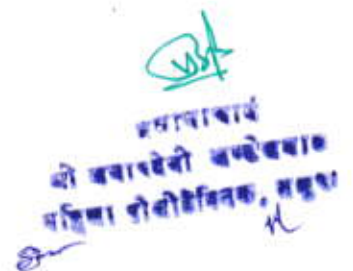 प्रधानाचार्य
श्री बनारदेवी खण्डेलवाल
महिला पोलीटैक्निक, मथुरा